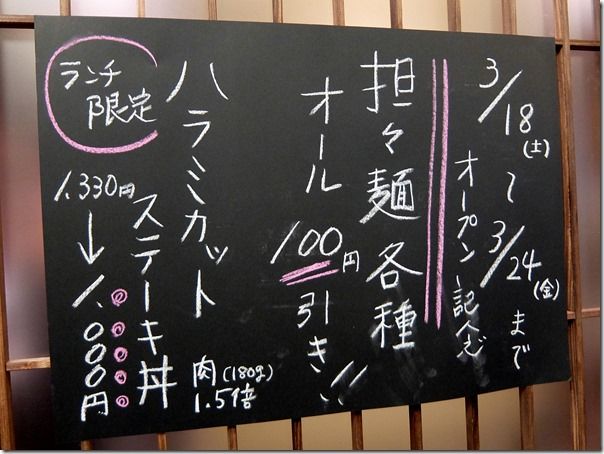 3/18(土)〜3/24(金)まで
オープン記念
担々麺各種
オール100円引き!!
ランチ限定
ハラミカット
ステーキ丼
肉(180g)
1.5倍
1.330円
↓
1.000円